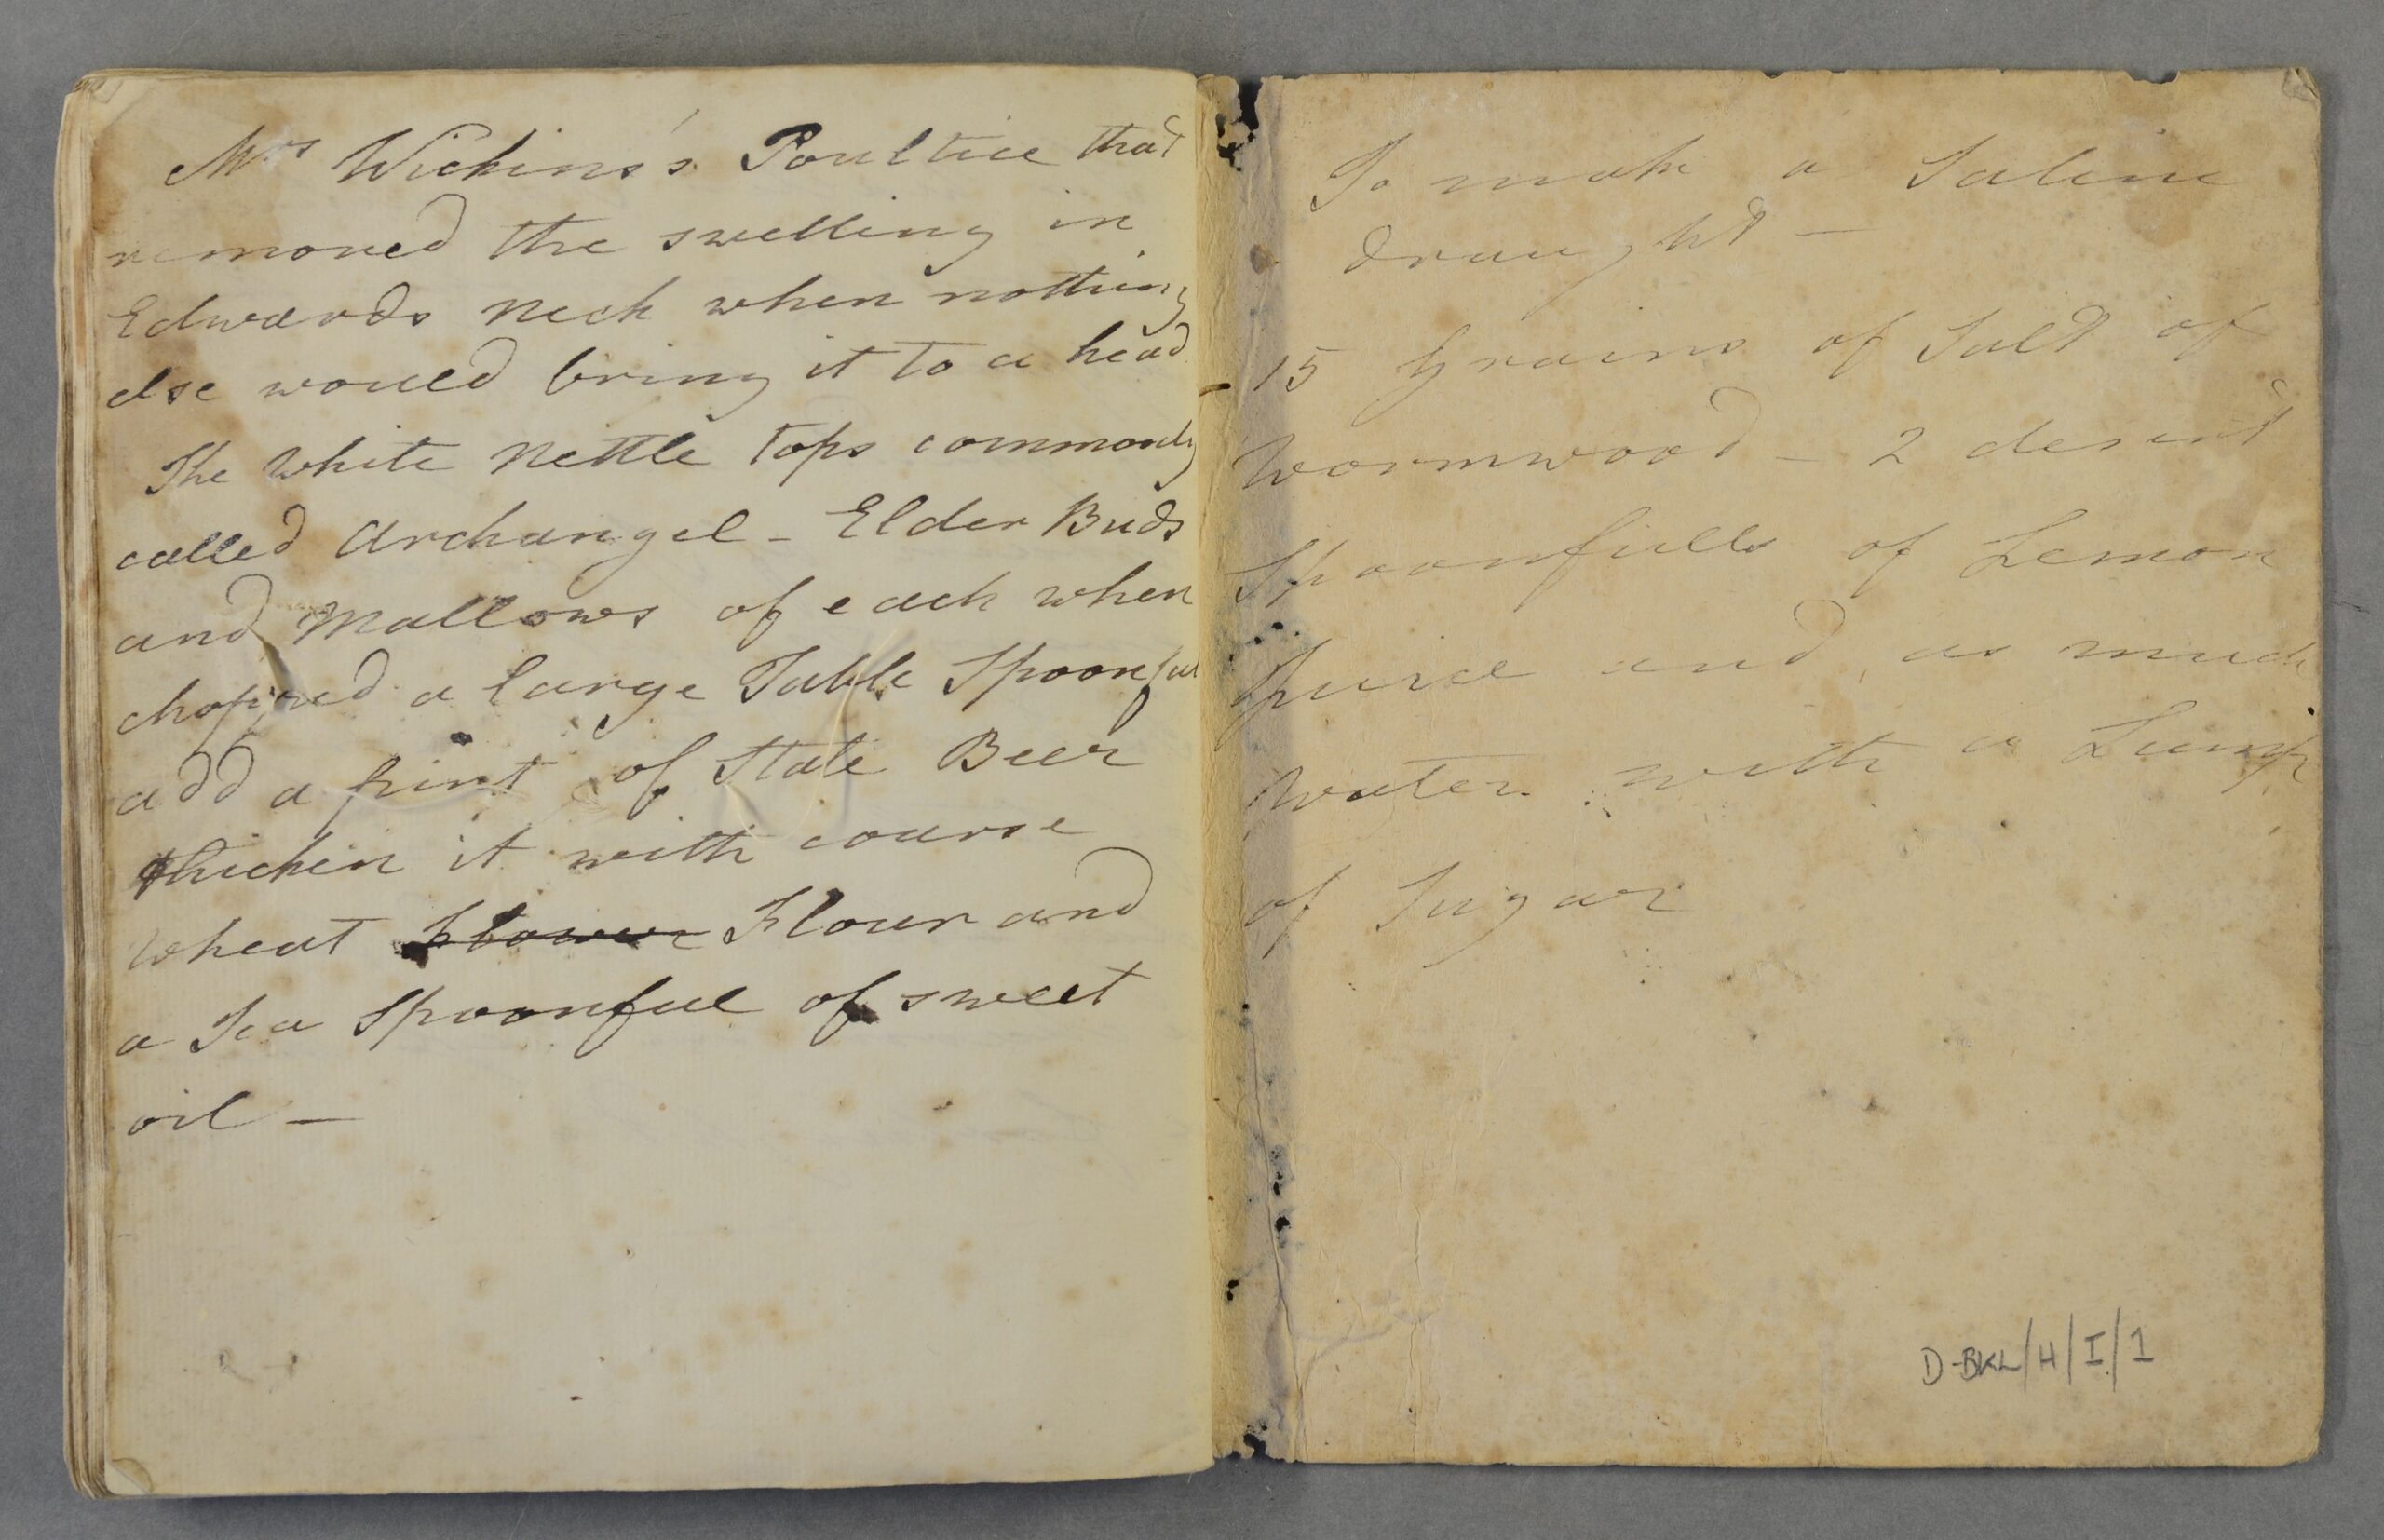 Mrs Wickins's Poultice that
removed the swelling in
Edwards neck when nothing
else would bring it to a head
The White Nettle tops commonly
called Archangel - Elder Buds
and Mallows of each when
chopped a large Table Spoonful
add a pint of Stale Beer
thicken it with course
wheat Flower Flour and
a Tea Spoonful of sweet
oil -
To make a Saline
draught -
15 Grains of Salt of
Wormwood - 2 desert
Spoonfulls of Lemon
Juice and as much
Water with a Lump
of Sugar
D-BKL/H/I/1